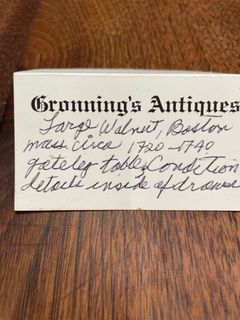 Gronning's Antiques
Large Walnut, Boston
mass. circa 1720-1740
gateleg table. Condition
details inside of drawer